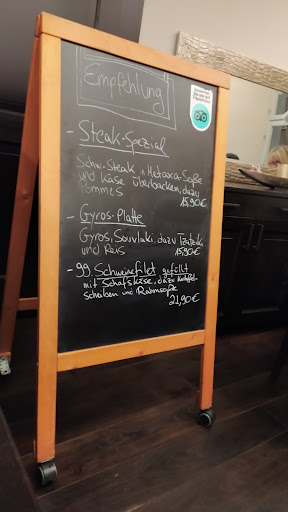 Empfehlung
- Steak-Spezial
Schw.-Steak in Metaxa-Soße
und Käse überbacken, dazu
Pommes 15,90€
- Gyros-Platte
Gyros, Souvlaki, dazu Tzatziki
und Reis 15,90€
- gg Schweinefilet gefüllt
mit Schafskäse, dazu Kartoffel-
scheiben und Rahmsoße
21,90€